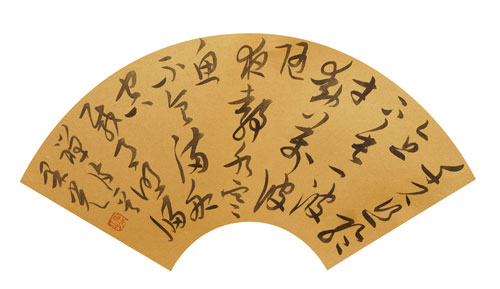 千尺丝纶
直下
垂一波
才
动万波
随
夜静水寒
鱼
不食满船
空
载月明归